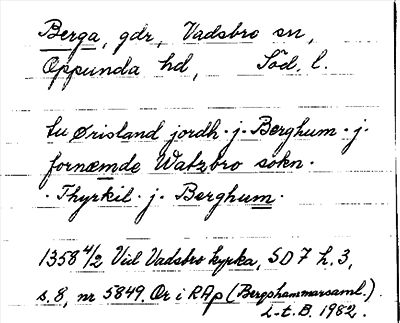 Berga, gdr, Vadsbro sn,
Oppunda hd, Söd. l.
tu Ørisland jordh · j · Berghum · j ·
fornæmde Watzbro sokn ·
· Thyrkil · j · Berghum ·
1358 4/2 Vid Vadsbro kyrka, SD 7 h. 3,
s. 8, nr 5849. Or i RAp (Bergshammarsaml.).
L-t. B. 1982.